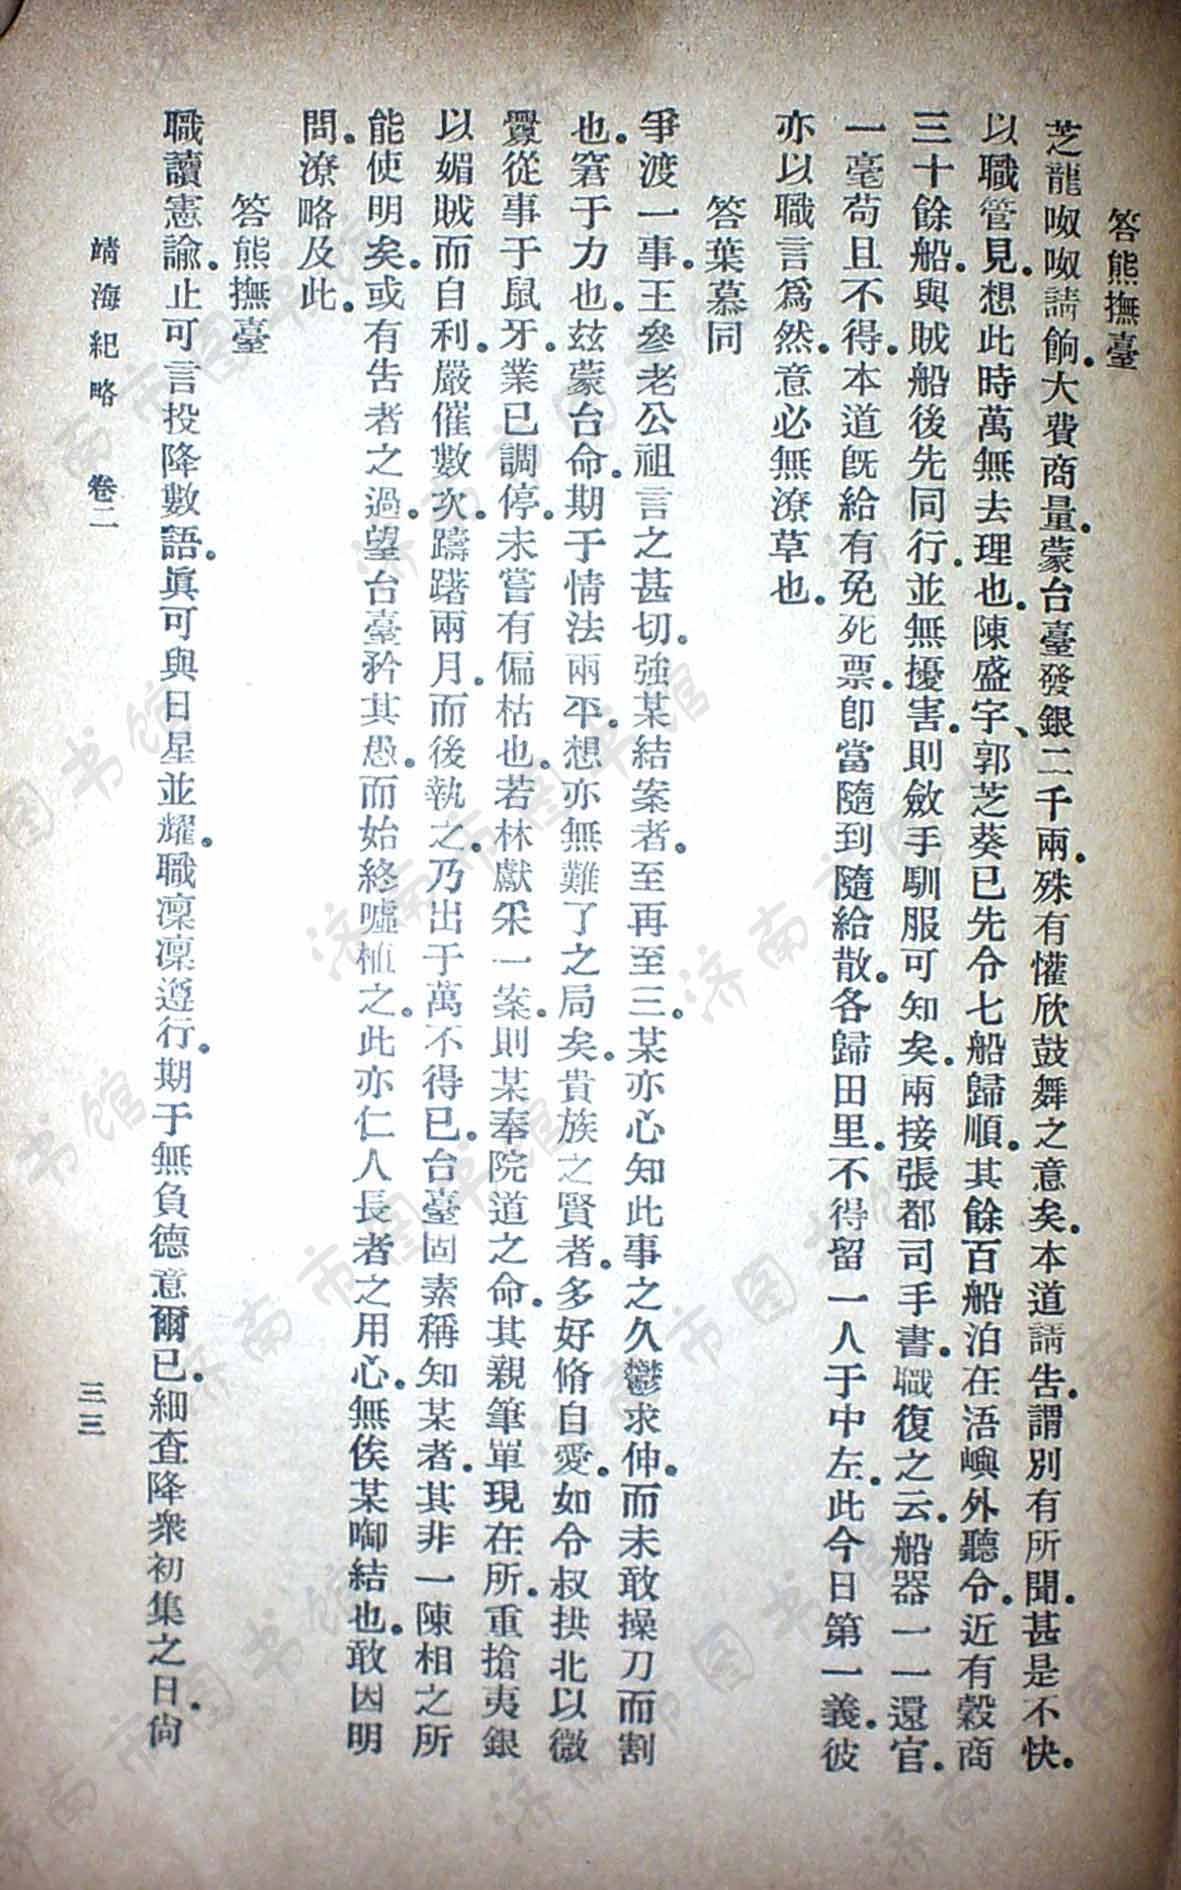 答熊撫臺
芝龍呶呶請餉。大費商量。蒙台臺發銀二千兩。殊有懽欣鼓舞之意矣。本道請告。謂別有所聞。甚是不快。
以職管見。想此時萬無去理也。陳盛宇、郭芝葵已先令七船歸順。其餘百船泊在浯嶼外聽令。近有穀商
三十餘船。與賊船後先同行。並無擾害。則斂手馴服可知矣。兩接張都司手書。職復之云。船器一一還官。
一毫苟且不得。本道旣給有免死票。卽當隨到隨給散。各歸田里。不得留一人于中左。此今日第一義。彼
亦以職言爲然。意必無潦草也。
答葉慕同
爭渡一事。王參老公祖言之甚切。強某結案者。至再至三。某亦心知此事之久鬱求伸。而未敢操刀而割
也。窘于力也。玆蒙台命。期于情法兩平。想亦無難了之局矣。貴族之賢者。多好脩自愛。如令叔拱北以微
釁從事于鼠牙。業已調停。未嘗有偏枯也。若林獻采一案。則某奉院道之命。其親筆單現在所。重搶夷銀
以媚賊而自利。嚴催數次。躊躇兩月。而後執之。乃出于萬不得已。台臺固素稱知某者。其非一陳相之所
能使明矣。或有告者之過。望台臺矜其愚。而始終噓植之。此亦仁人長者之用心。無俟某啣結也。敢因明
問。潦略及此。
答熊撫臺
職讀憲諭。止可言投降數語。眞可與日星並耀。職凜凜遵行。期于無負德意爾已。細查降衆初集之日。尙
靖海紀略 卷二 三三